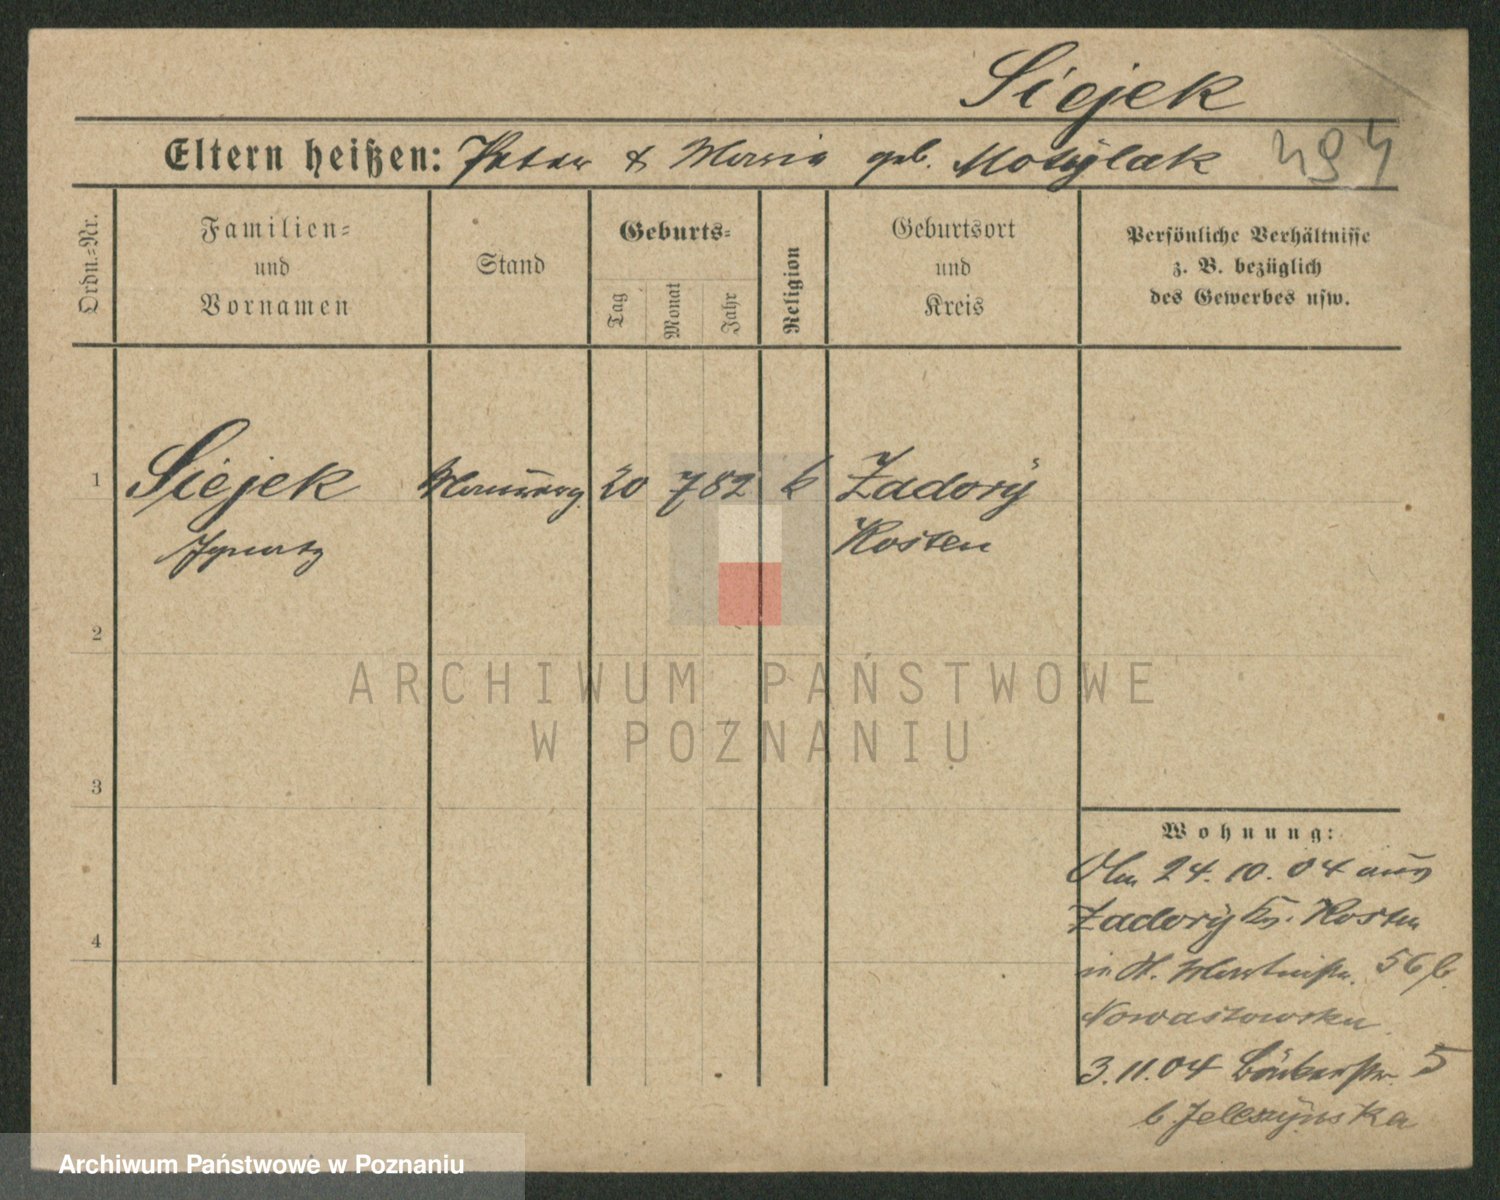 Siejek
Eltern heißen: Peter & Maria geb. Motÿlak 494
Ordn.-Nr.
Familien-
und
Vornamen
Stand
Geburts-
Tag
Monat
Jahr
Religion
Geburtsort
und
Kreis
Persönliche Verhältnisse
z. B. bezüglich
des Gewerbes usw.
1 Siejek 20 7 82 k Zadorÿ
Ignatz Kosten
2
3
4
Wohnung:
24. 10. 04 aus
Zadorÿ Kr. Kosten
in St. Martinstr. 56 b.
Nowastowska
3. 11. 04 5
b. Jeleszÿnska
ARCHIWUM PAŃSTWOWE
W POZNANIU
Archiwum Państwowe w Poznaniu